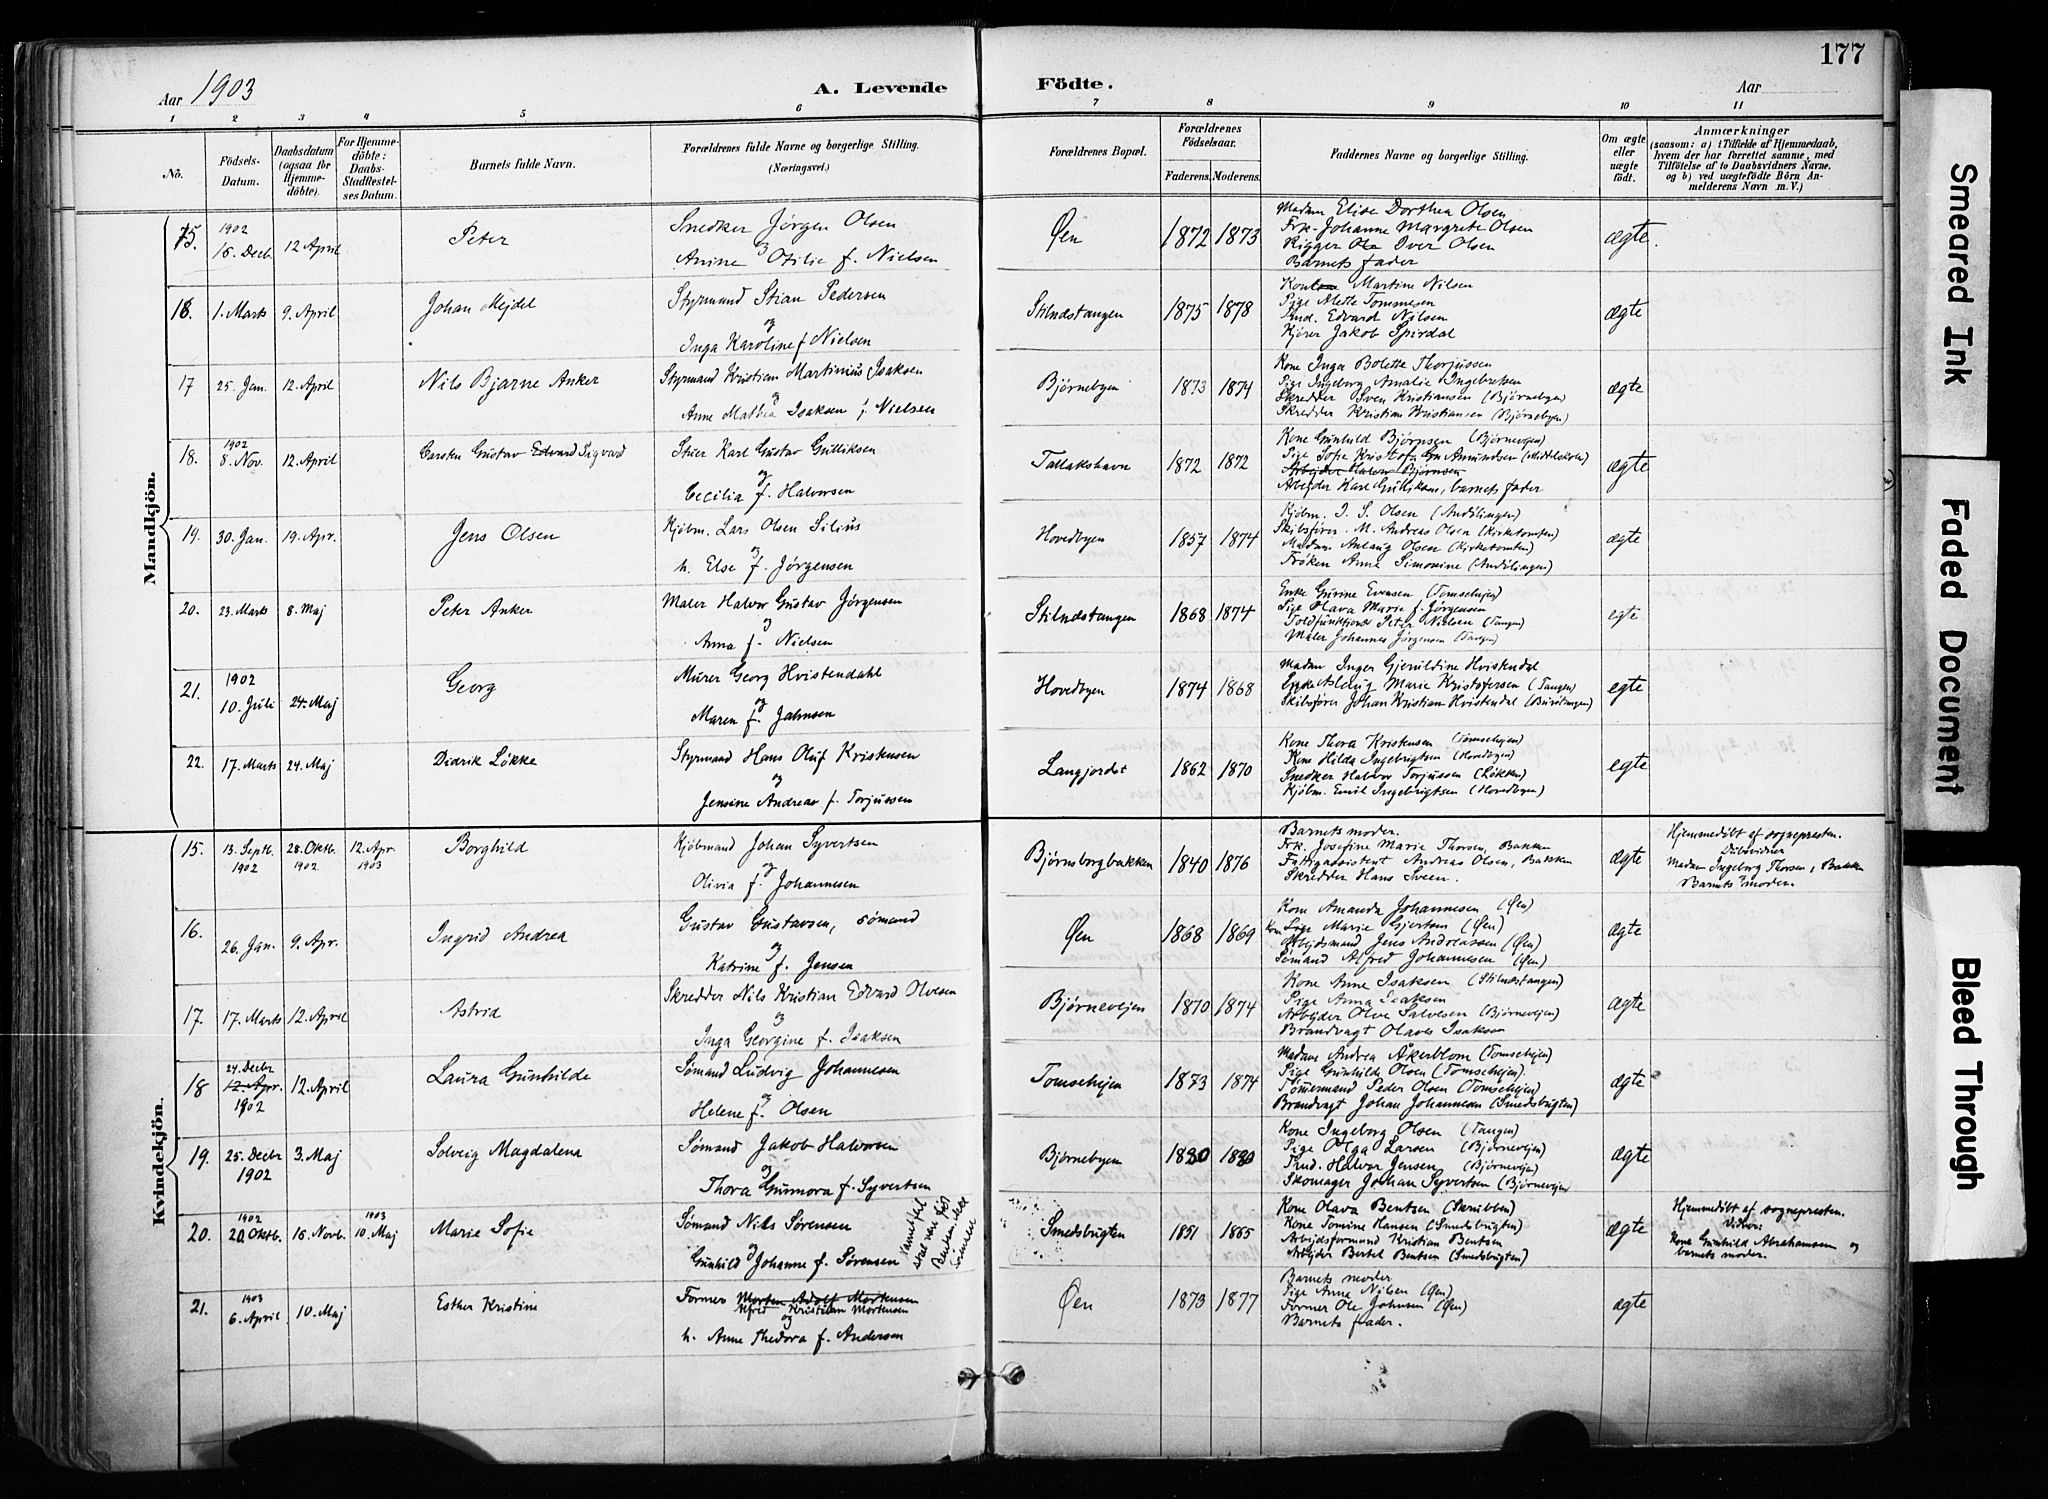 177
Aar 1903
A. Levende
Födte.
Aar
1 2 3 4 5 6 7 8 9 10 11
No.
Födsels-Datum.
Daabsdatum (ogsaa for Hjemmedöbte).
For Hjemmedöbte: Daabs-Stadfæstelses Datum.
Barnets fulde Navn.
Forældrenes fulde Navne og borgerlige Stilling.
(Næringsvei.)
Forældrenes Bopæl.
Forældrenes Födselsaar.
Faderens. Moderens.
Faddernes Navne og borgerlige Stilling.
Om ægte eller uægte födt.
Anmærkninger
(saasom: a) i Tilfælde af Hjemmedaab, hvem der har forrettet samme, med Tilföielse af to Daabsvidners Navne. og b) ved uægtefödte Börn Anmelderens Navn m. V.)
Mandkjön.
15. 1902 16. Decb. 12 April Peter
Snedker Jørgen Olsen
og
Anine Otilie f. Nielsen
Øen 1872 1873
Madam Elise Dorthea Olsen
Frk. Johanne Margrete Olsen
Rigger Iver Olsen
Barnets fader
ægte.
16. 1. Marts 9. April Johan Mejdel
Styrmand Stian Pedersen
og
Inga Karoline f. Nielsen
Stilndstangen 1875 1878
Kone Martine Nilsen
Pige Alette Tommesen
Tmd. Edvard Nilsen
Kjører Jakob Spirdal
ægte
17 25. Jan. 12. April Nils Bjarne Anker
Styrmand Kristian Martinius Isaksen
og
Anne Mathea Isaksen f. Nielsen
Bjørnebyen 1873 1874
Kone Inga Bolette Thorjussen
Pige Ingeborg Amalie Ingebretsen
Skredder Sven Kristiansen (Bjørnebyen)
Skredder Kristian Kristiansen (Bjørnebyen)
ægte
18. 1902 8. Nov. 12. April Carsten Gustav Edvard Sigvard
Stuer Karl Gustav Gulliksen
og
Cecilia f. Halvorsen
Tallakshavn 1872 1872
Kone Gunhild Bjørnsen (Bjørnevejen)
Pige Sofie Kristofa Amundsen (Middelskolen)
Arbejder Halvor Bjørnsen
Arbejder Karl Gulliksen, barnets fader
ægte
19. 30. Jan. 19. Apr. Jens Olsen
Kjøbm. Lars Olsen Silius
og
h. Else f. Jørgensen
Hovedbyen 1857 1874
Kjøbm. I. S. Olsen
Skibsfører M. Andreas Olsen (Kirketomten)
Madam Anlaug Olsen (Kirketomten)
Frøken Anna Simonine
ægte
20. 23. Marts 8. Maj Peter Anker
Maler Halvor Gustav Jørgensen
og
Anna f. Nielsen
Stilndstangen 1868 1874
Enke Gurine Evensen (Tomsehejen)
Pige Olava Marie f. Jørgensen
Toldfunktionær Peter Nielsen (Tangen)
Maler Johannes Jørgensen (Tangen)
egte
21. 1902 10. Juli 24. Maj Georg
Murer Georg Hvistendahl
og
Maren f. Jahnsen
Hovedbyen 1874 1868
Madam Inger Gjerüldine Hvistendal
Enke Aslaug Marie Kristofersen (Tangen)
Skibsfører Johan Kristian Hvistendal
egte
22. 17. Marts 24. Maj Didrik Løkke
Styrmand Hans Oluf Kristensen
og
Jensine Andrea f. Torjussen
Langjordet 1862 1870
Kone Thora Kristensen (Tomsehejen)
Kone Hilda Ingebrigtsen (Hovedbyen)
Snedker Halvor Torjussen (Løkken)
Kjøbm. Emil Ingebrigtsen (Hovedbyen)
egte
Kvindekjön.
15. 13. Septb. 1902 28. Oktb. 1902 12. Apr. 1903 Borghild
Kjøbmand Johan Syvertsen
og
Olivia f. Johannesen
Bjørnsborgbakken 1840 1876
Barnets moder.
Frk. Josefine Marie Thorsen, Bakken
Fattigassistent Andreas Olsen, Bakken
Skredder Hans Sveen.
ægte
Hjemmedøbt af sognepresten.
Dåbsvidner
Madam Ingeborg Thorsen, Bakken
Barnets moder.
16. 26. Jan. 9. Apr. Ingrid Andrea
Gustav Gustavsen, sømand
og
Katrine f. Jensen
Øen 1868 1869
Kone Amanda Johannesen (Øen)
Kone Marie Gjertsen (Øen)
Arbejdsmand Jens Andreassen (Øen)
Sømand Alfred Johannesen (Øen)
ægte
17. 17. Marts 12. April Astrid
Skredder Nils Kristian Edvard Olvesen
og
Inga Georgine f. Isaksen
Bjørnevejen 1870 1874
Kone Anne Isaksen (Stilndstangen)
Pige Anna Isaksen
Arbejder Olve Salvesen (Bjørnevejen)
Brandvagt Olaves Isaksen
ægte
18 24. Decbr 12. Apr. 1902 12. April Laura Gunhilde
Sømand Ludvig Johannesen
og
Helene f. Olsen
Tomsehejen 1873 1874
Madam Andrea Åkerblom (Tomsehejen)
Pige Gunhilde Olsen (Tomsehejen).
Tømmermand Peder Olsen (Tomsehejen)
Brandvagt Johan Johannesen (Smedsbugten)
ægte
19. 25. Decbr 1902 3. Maj Solveig Magdalena
Sømand Jakob Halvorsen
og
Thora Gunnora f. Syvertsen
Bjørnebyen 1880 1880
Kone Ingeborg Olsen (Tangen)
Pige Olga Larsen (Bjørnevejen)
Tmd. Halvor Jensen (Bjørnevejen)
Skomager Johan Syvertsen (Bjørnevejen)
ægte
20. 1902 20. Oktb. 16. Novb. 1903 10. Maj Marie Sofie
Sømand Nils Sørensen
og
Gunhild Johanne f. Sørensen
Smedsbugten 1851 1865
Kone Olava Bentsen (Skrubben)
Kone Tomine Hansen (Smedsbugten)
Arbejdsformand Kristian Bentsen
Arbejder Bertel Bentsen (Smedsbugten)
ægte
Hjemmedøbt af sognepresten.
Vidner:
Kone Gunhild Abrahamsen og
barnets moder.
21. 1903 6. April 10. Maj Esther Kristine
Former Morten Adolf Mortensen
Alfred Kristian Mortensen
og
h. Anne Thedora f. Andersen
Øen 1873 1877
Barnets moder
Pige Anna Nilsen (Øen)
Former Ole Johnsen (Øen)
Barnets fader.
ægte
Smeared Ink
Faded Document
Bleed Through